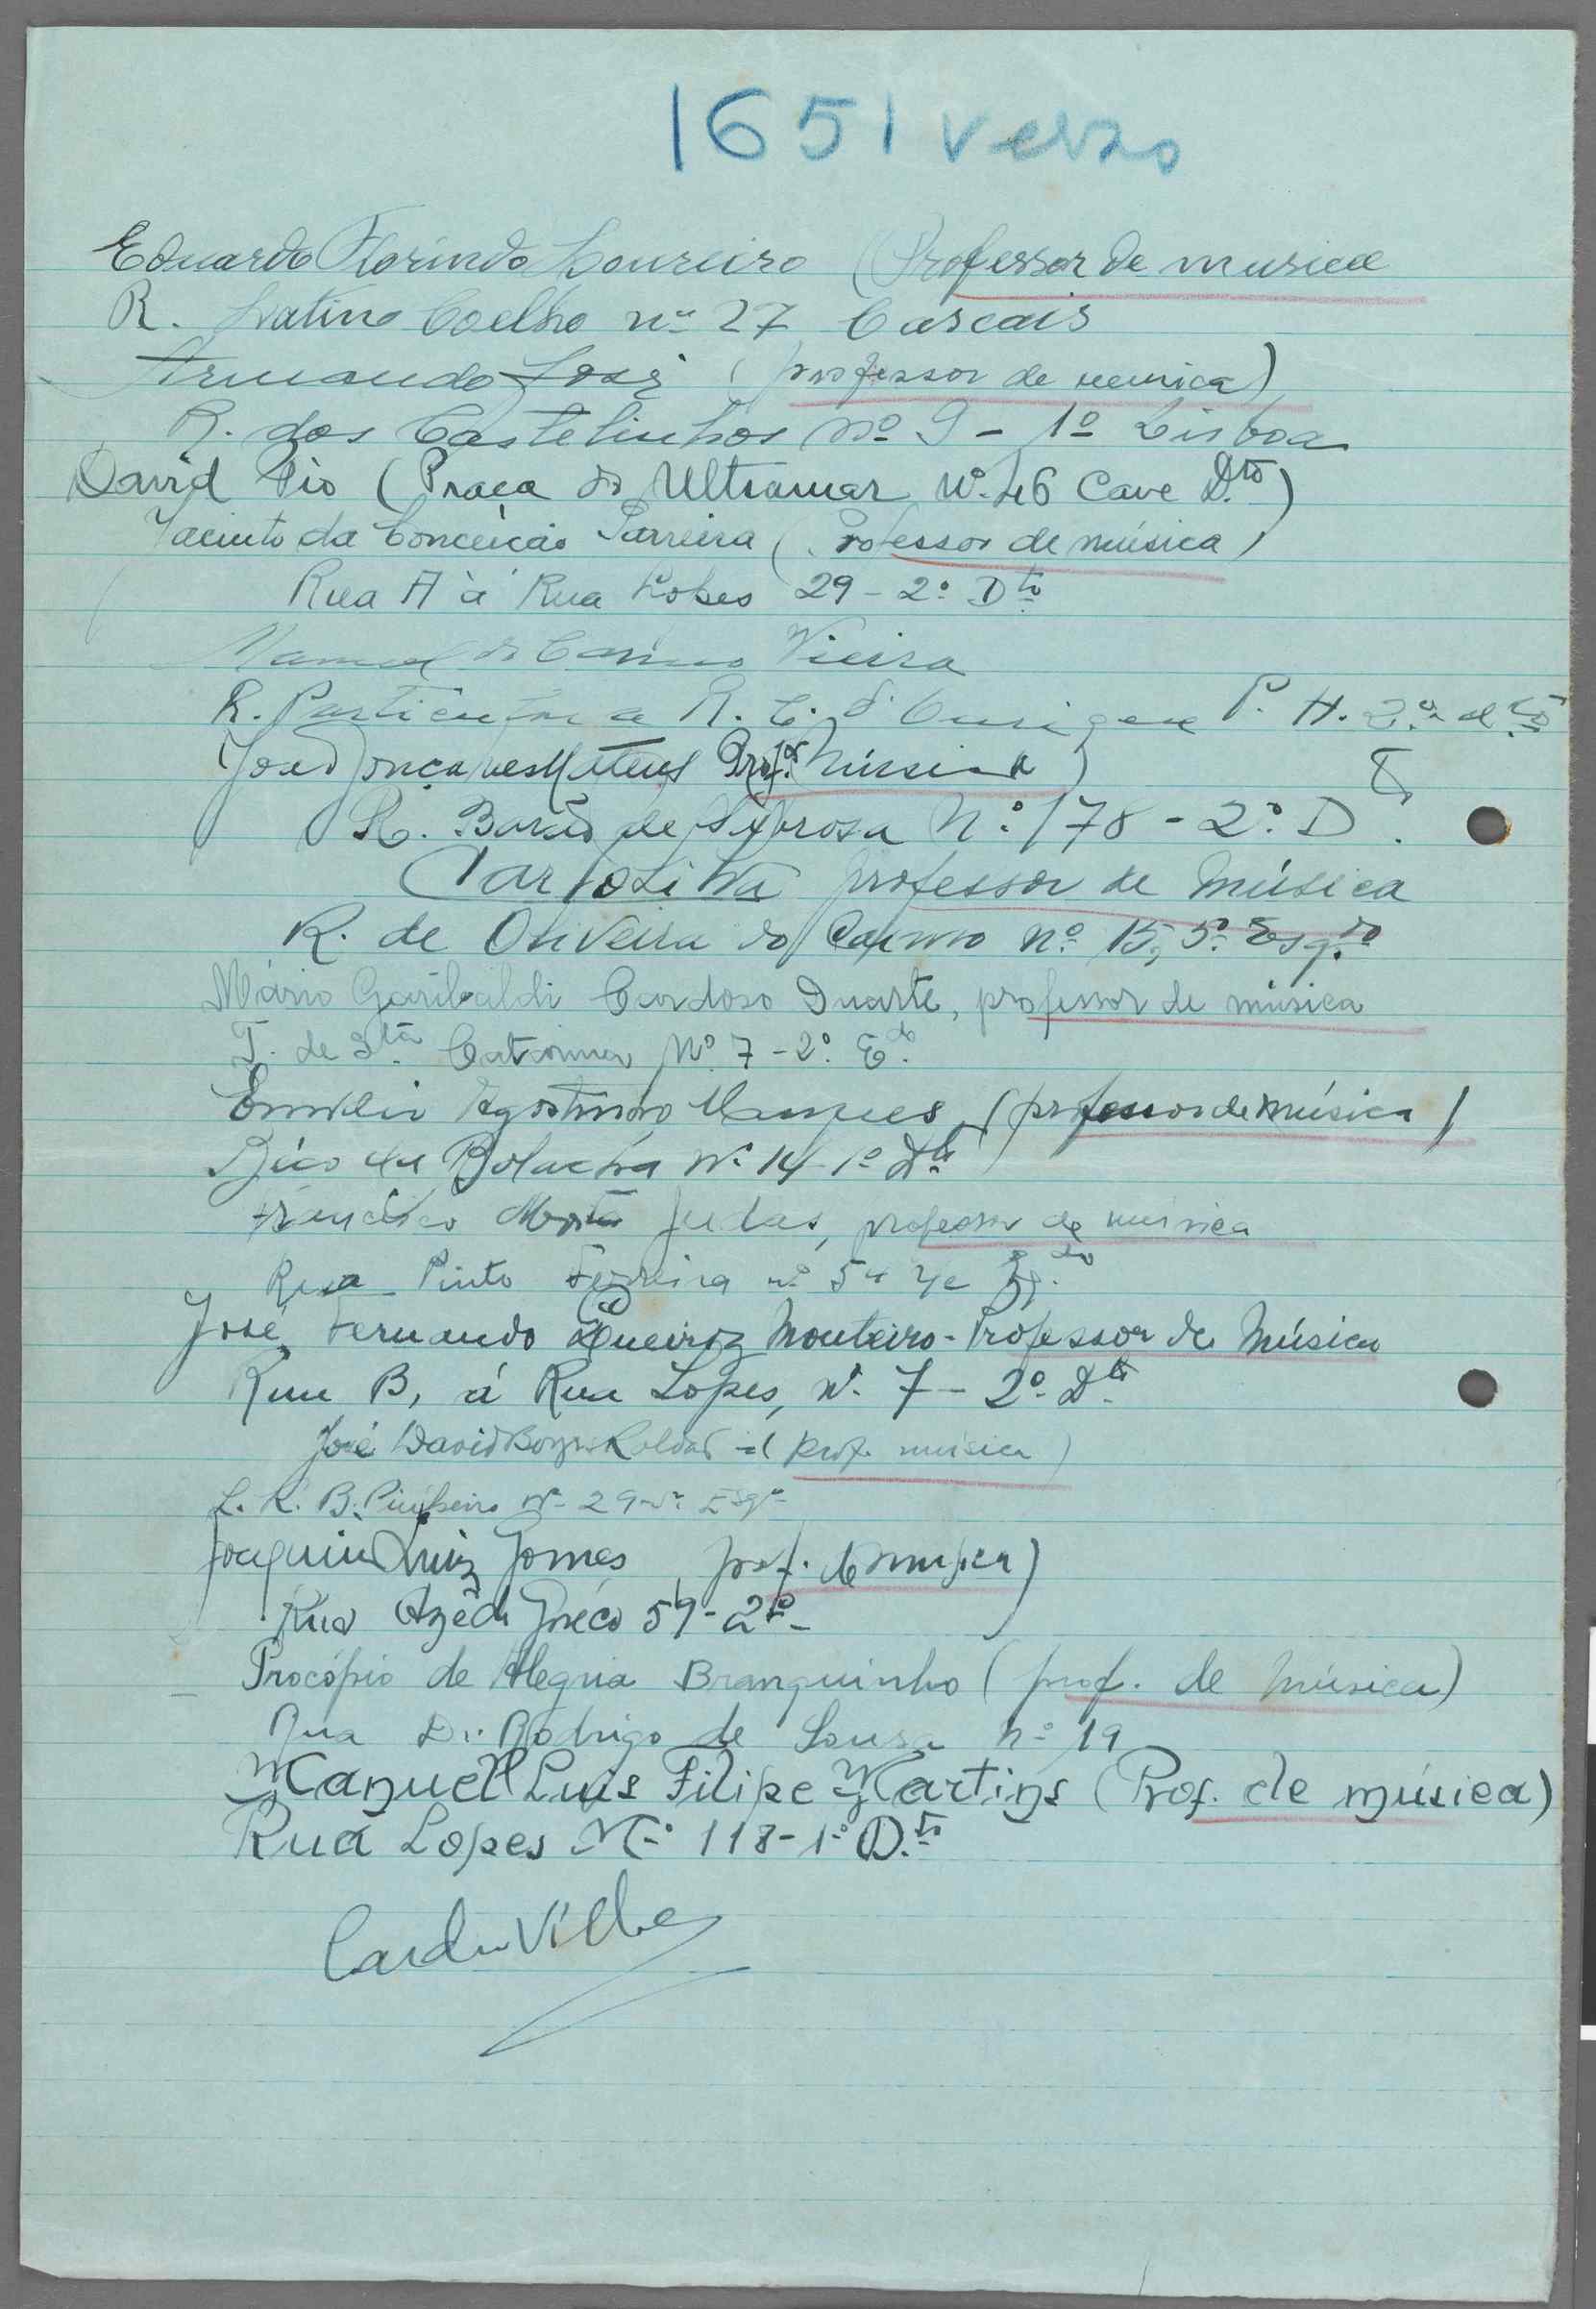 1651 verso
Eduardo Florindo Loureiro (Professor de musica
R. Latino Coelho nº 27 Cascais
Armando José (professor de musica)
R. dos Castelinhos nº 9 - 1º Lisboa
David Pio (Praça do Ultramar Nº 46 Cave D.to)
Jacinto da Conceição Parreira (Professor de música)
Rua A à Rua Lopes 29 - 2º Dto
Manuel do Carmo Vieira
R. Particular a R. P. H. 2º
João Gonçalves Mateus Prof.or Música)
R. Barão de Sabrosa Nº 178 - 2º. D.to
Carlos Silva professor de Música
R. de Oliveira do Carmo nº 15, 5º Esq.do
Mário Garibaldi Cardoso Duarte, professor de música
T. de Sta Catarina Nº 7 - 2º E.do
Emilio Agostinho Marques (professor de música)
Bolacha Nº 14 - 1º Dto
Francisco Judas, professor de música
Rua Pinto Ferreira nº
José Fernando Queiroz Monteiro - Professor de Música
Rua B, á Rua Lopes, Nº 7 - 2º Dto
José David (prof. música)
Nº 29 Esqº
Joaquim Luiz Gomes prof. de musica)
Rua Azêdo Gnéco 59 - 2º
Procópio de Alegria Branquinho (prof. de Música)
Rua Dr. Rodrigo de Sousa nº 19
Manuel Luís Filipe Martins (Prof. de música)
Rua Lopes Nº 118 - 1º D.to